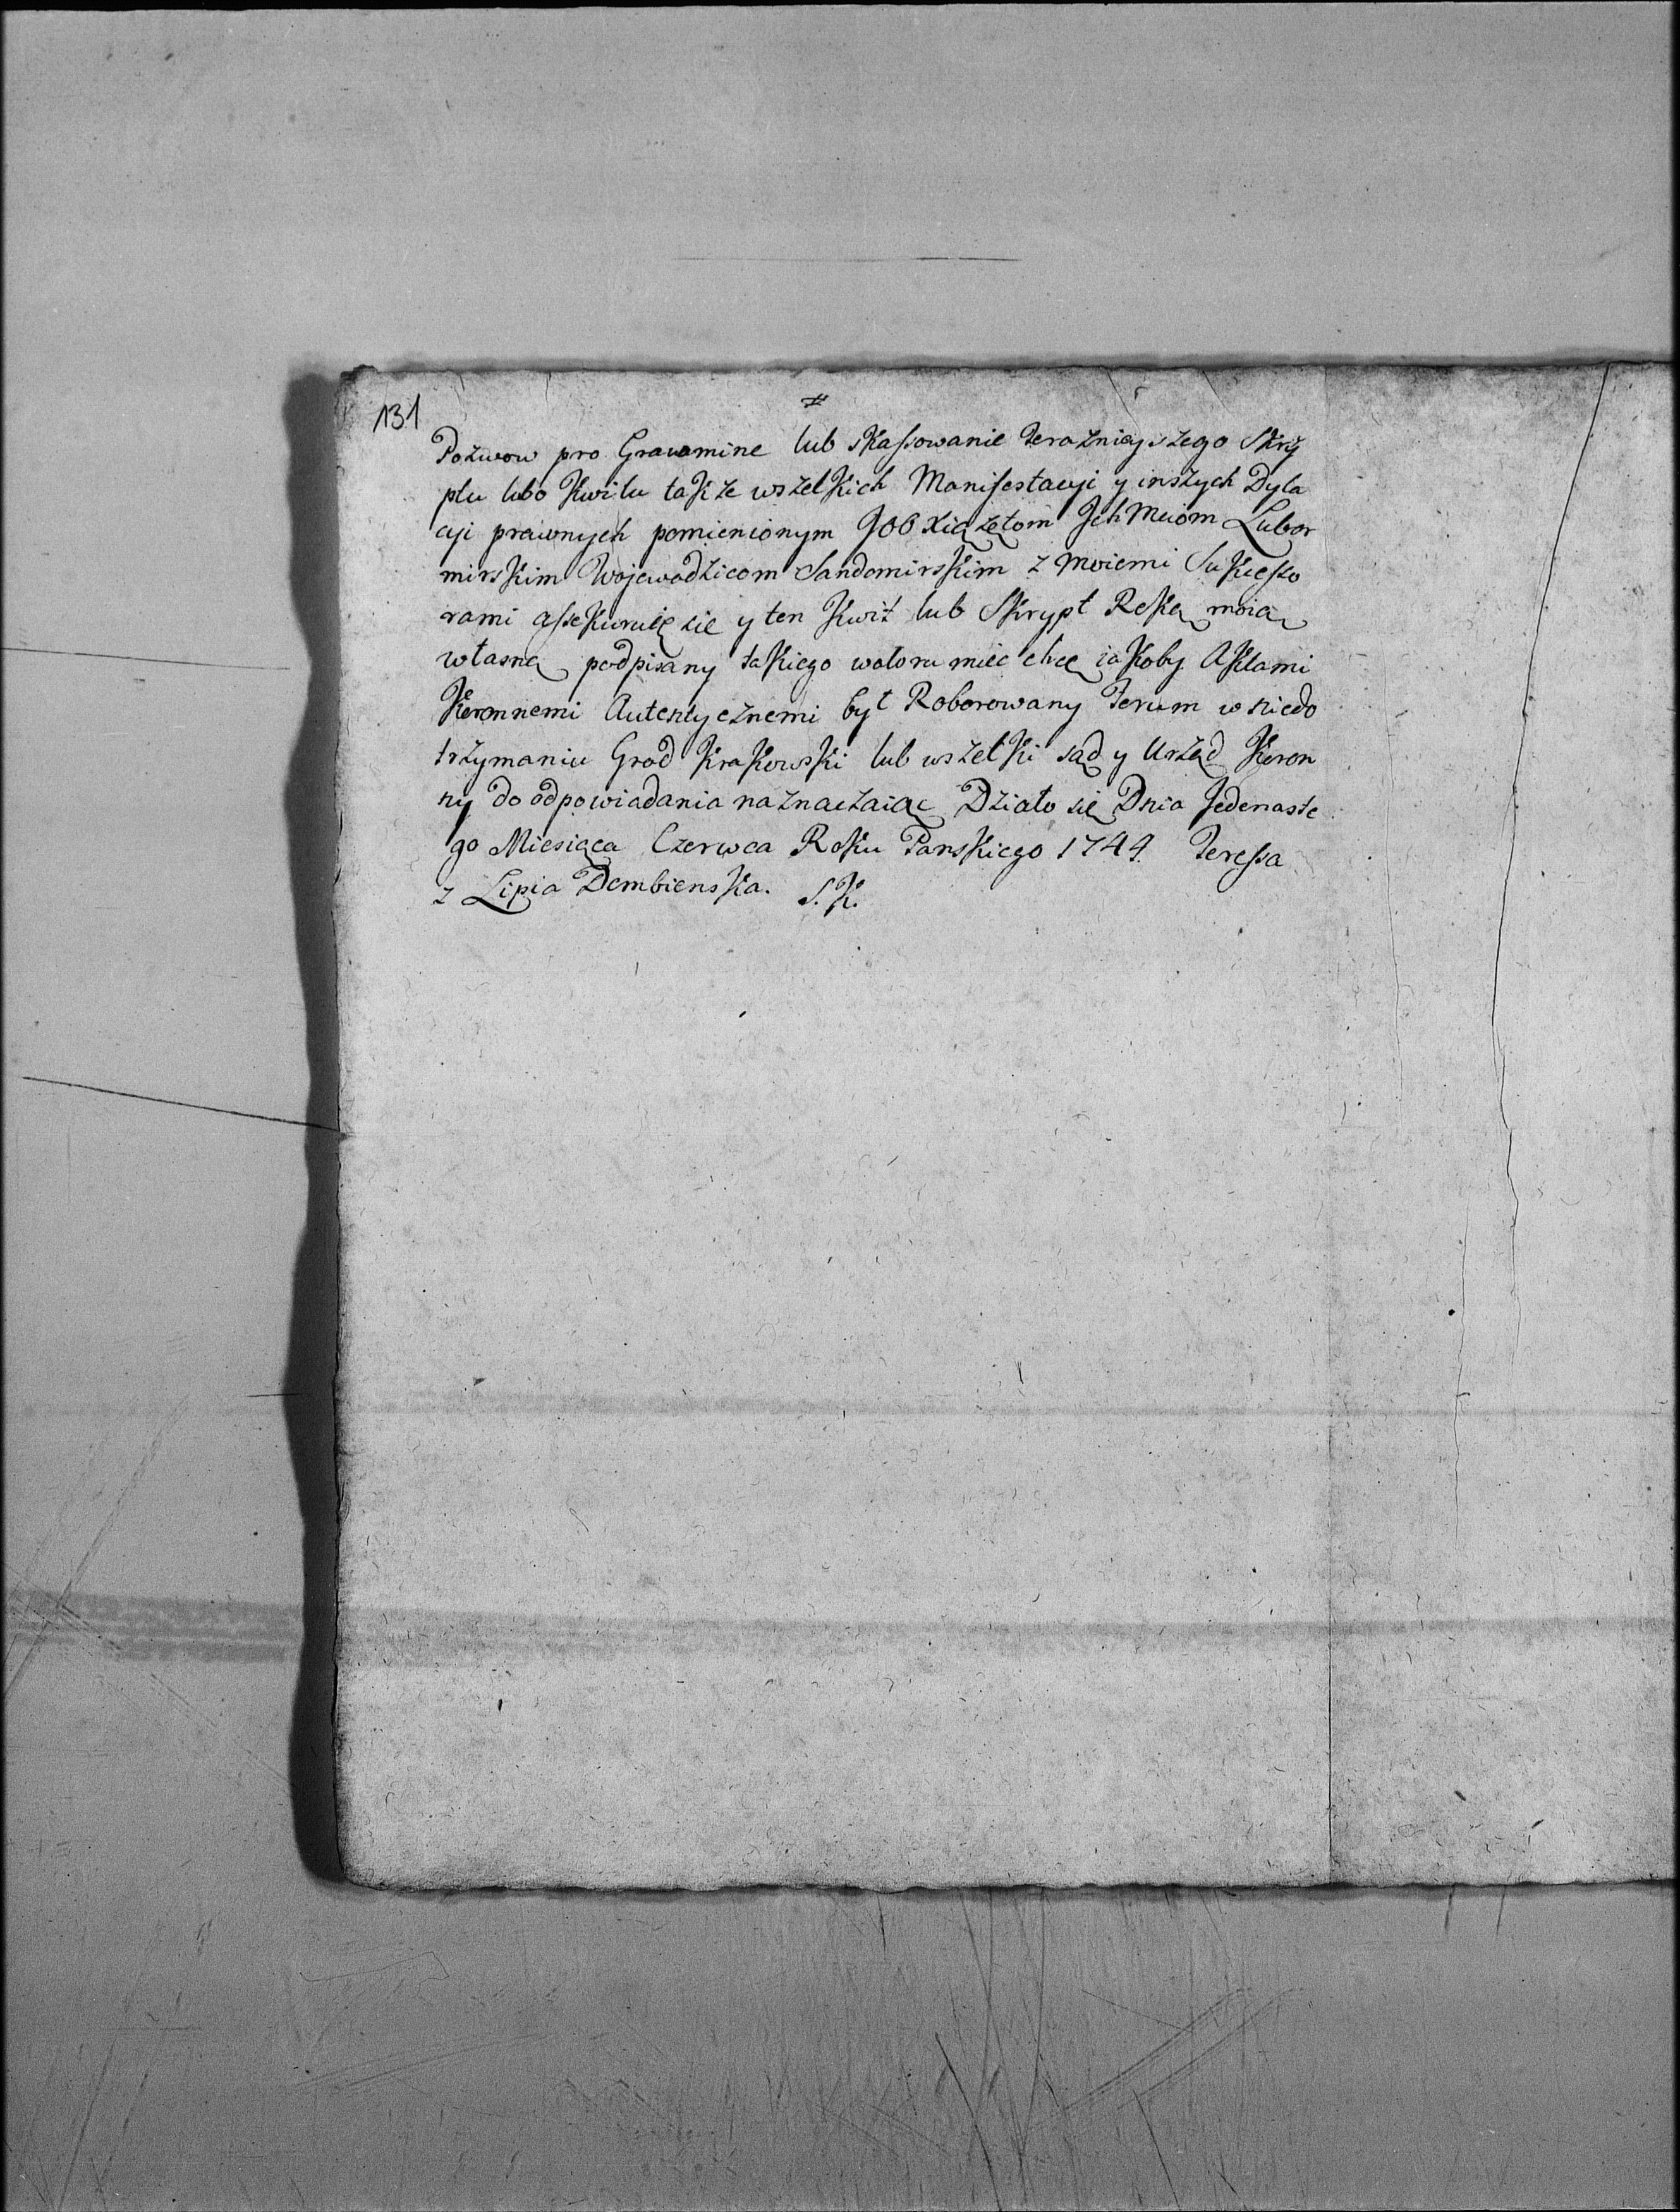 131
#
Pozwow pro Gravamine lub skassowanie teraznieyszego Skry
ptu lubo Kwitu takze wszelkich Manifestacyi y inszych Dyla
cyi prawnych pomienionym JOO Xiązętom Ich Mciom Lubor
mirskim Wojewodzicom Sandomirskim z moiemi Sukcesso
rami assekuruię się y ten Kwit lub Skrypt Ręką moią
własną podpisany takiego waloru miec chcę iakoby Aktami
Koronnemi Autentycznemi był Roborowany Forum w niedo
trzymaniu Grod Krakowski lub wszelki sąd y Urząd Koron
ny do odpowiadania naznaczaiąc Działo się Dnia Jedenaste
go Miesiąca Czerwca Roku Panskiego 1744 Teressa
z Lipia Dembienska. S. K.